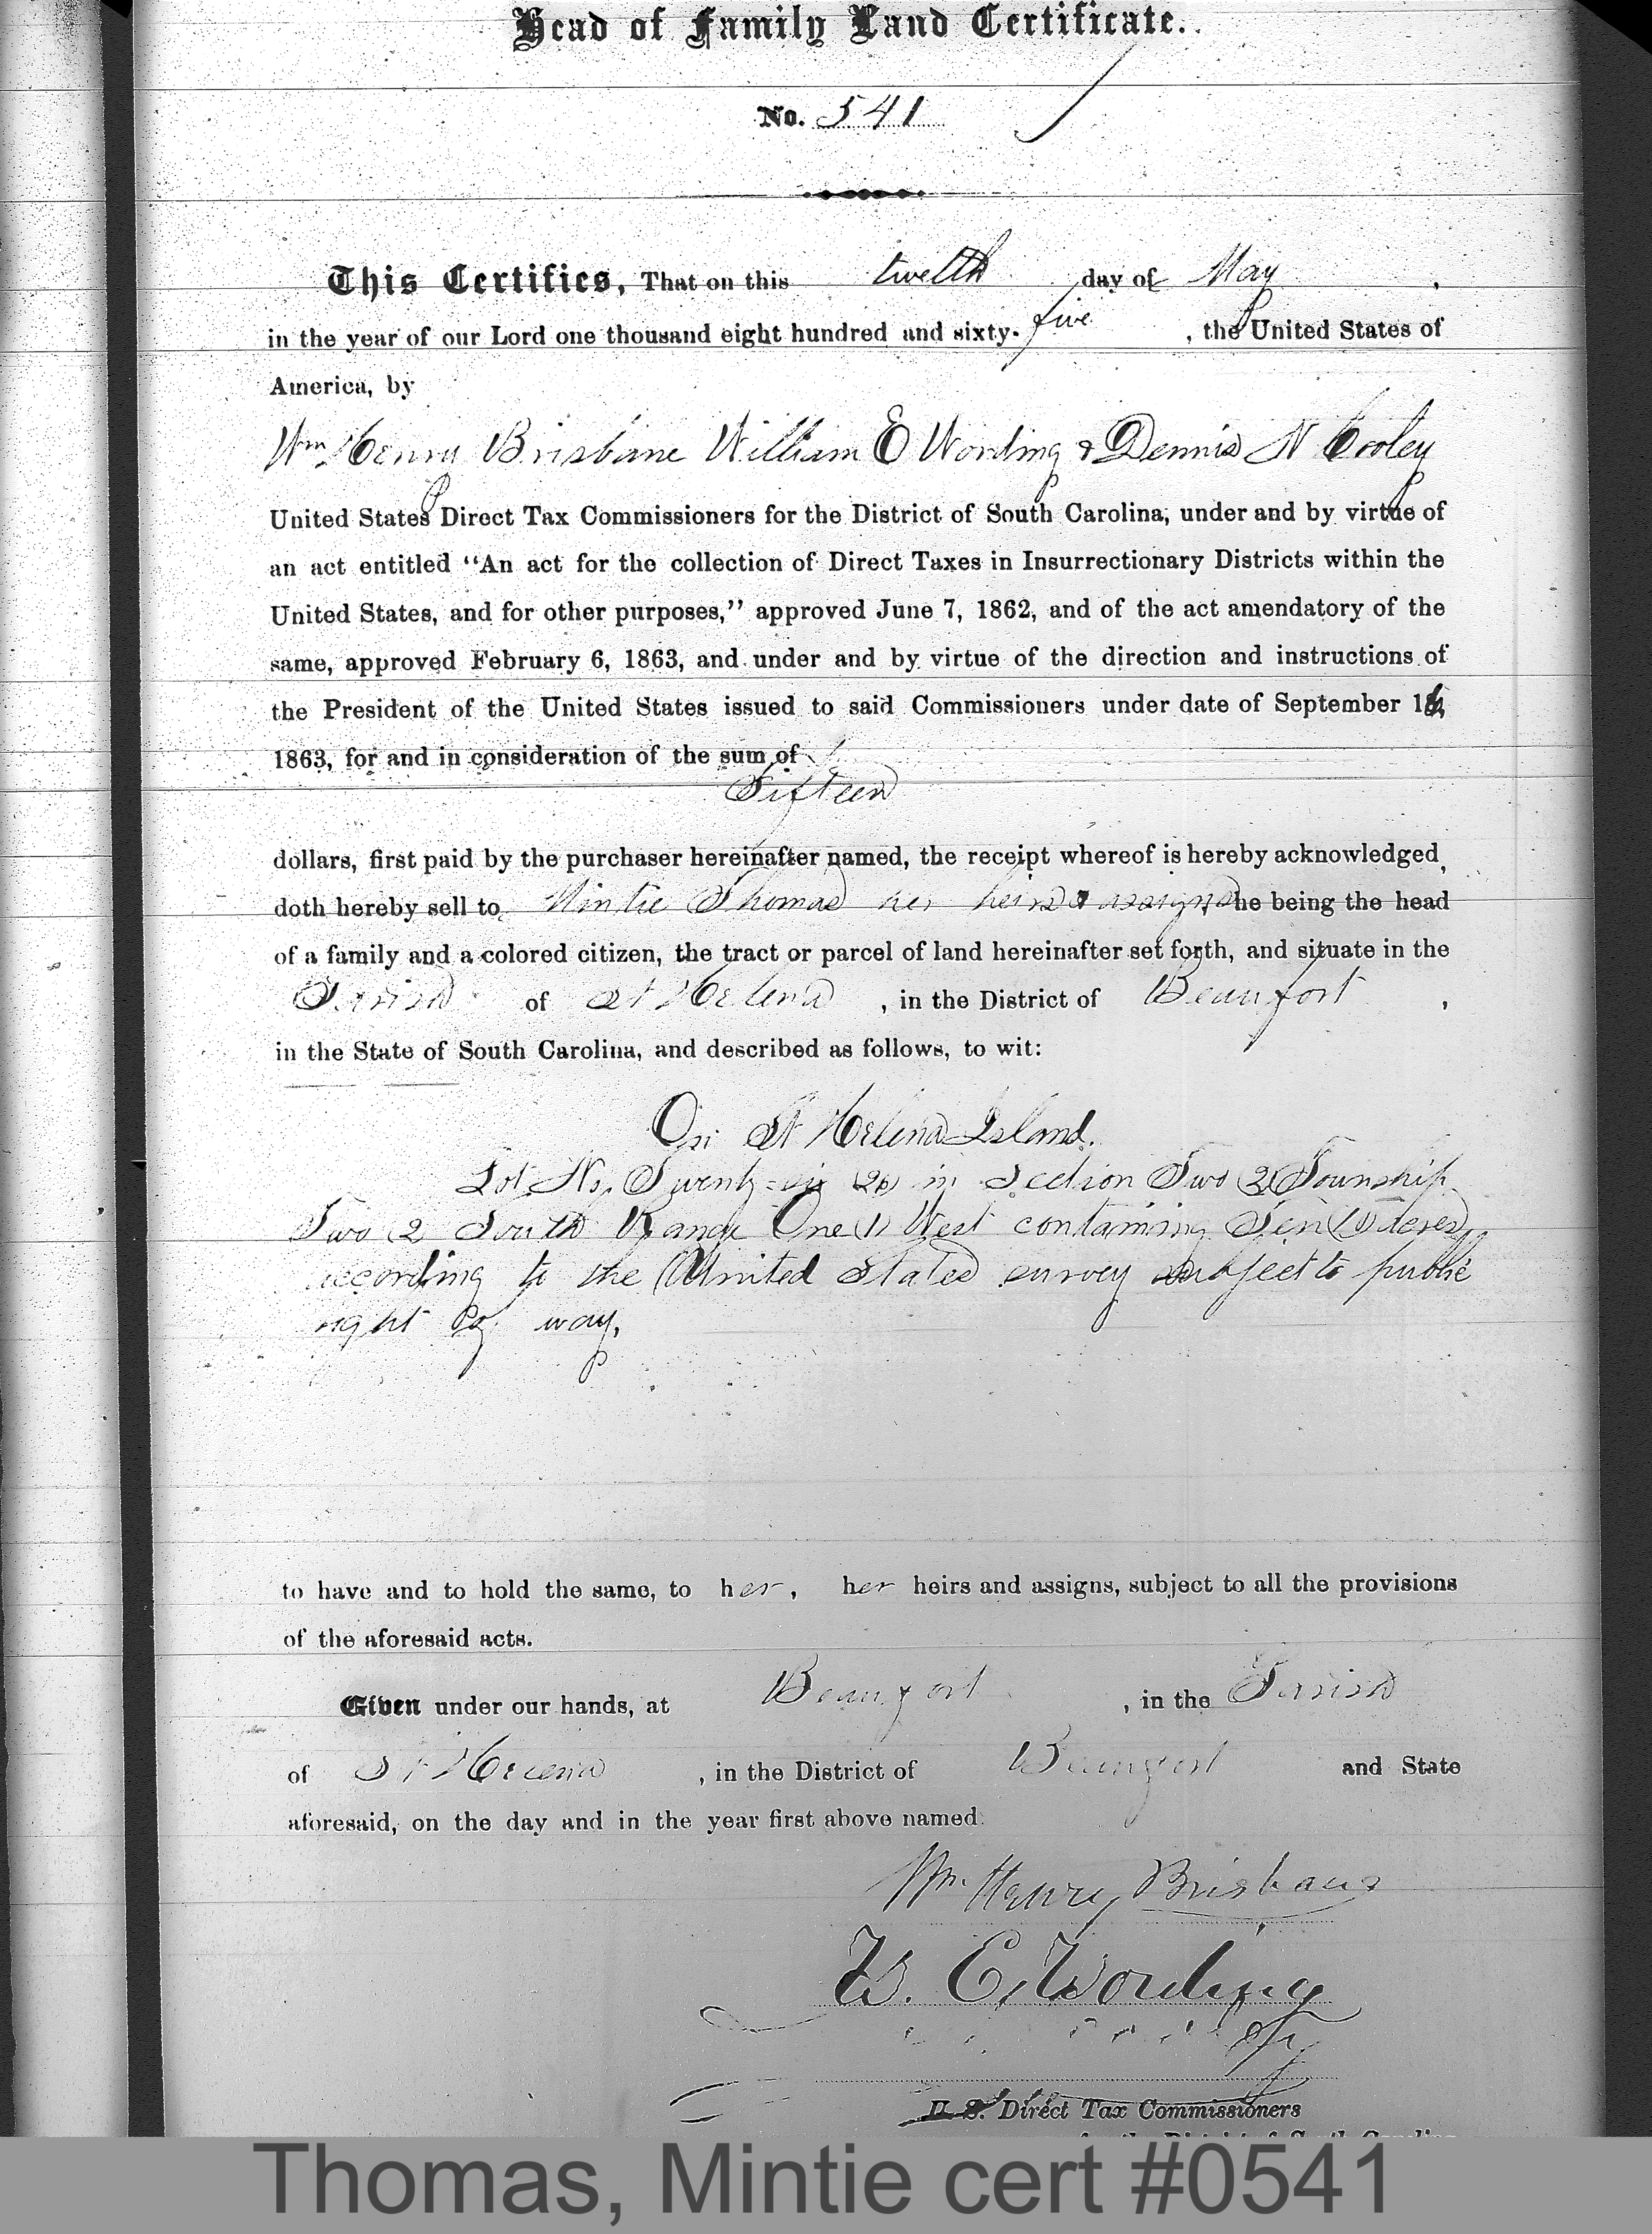 Head of Family Land Certificate.
No. 541
This Certifies, That on this twelth day of May,
in the year of our Lord one thousand eight hundred and sixty-five, the United States of
America, by
Wm. Henry Brisbane William E Wording & Dennis N Cooley
United States Direct Tax Commissioners for the District of South Carolina, under and by virtue of
an act entitled "An act for the collection of Direct Taxes in Insurrectionary Districts within the
United States, and for other purposes," approved June 7, 1862, and of the act amendatory of the
same, approved February 6, 1863, and under and by virtue of the direction and instructions of
the President of the United States issued to said Commissioners under date of September 16,
1863, for and in consideration of the sum of
Fifteen
dollars, first paid by the purchaser hereinafter named, the receipt whereof is hereby acknowledged,
doth hereby sell to Mintie Thomas her heirs & assigns, she being the head
of a family and a colored citizen, the tract or parcel of land hereinafter set forth, and situate in the
Parish of St Helena, in the District of Beaufort,
in the State of South Carolina, and described as follows, to wit:
On St Helena Island.
Lot No. Twenty-six (26) in Section Two (2) Township
Two (2) South Range One (1) West containing Ten (10) acres,
according to the United States survey subject to public
right of way.
to have and to hold the same, to her, her heirs and assigns, subject to all the provisions
of the aforesaid acts.
Given under our hands, at Beaufort, in the Parish
of St Helena, in the District of Beaufort and State
aforesaid, on the day and in the year first above named.
Wm. Henry Brisbane
W. E. Wording
U. S. Direct Tax Commissioners
for the District of South Carolina
Thomas, Mintie cert #0541